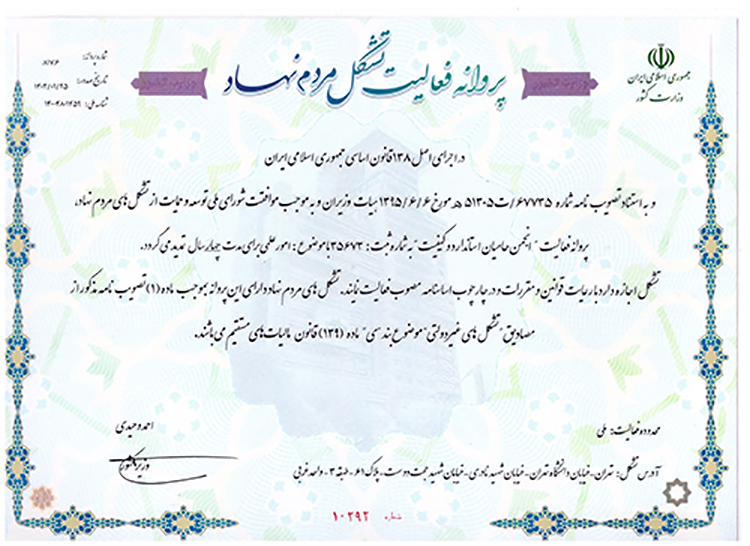 جمهوری اسلامی ایران
وزارت کشور
پروانه فعالیت تشکل مردم نهاد
شماره پروانه:
تاریخ صدور: ۱۴۰۲/۰۱/۲۵
شناسه ملی: ۱۴۰۰۴۸۰۱۲۵۹
در اجرای اصل ۱۳۸ قانون اساسی جمهوری اسلامی ایران
و به استناد تصویب نامه شماره ۶۷۷۳۵/ت۵۱۳۰۵ هـ مورخ ۱۳۹۵/۶/۶ هیات وزیران و به موجب موافقت شورای ملی توسعه و حمایت از تشکل های مردم نهاد،
پروانه فعالیت " انجمن حامیان استاندارد و کیفیت " به شماره ثبت: ۳۵۶۷۳ با موضوع: امور علمی برای مدت چهار سال تمدید می گردد.
تشکل اجازه دارد با رعایت قوانین و مقررات و در چارچوب اساسنامه مصوب فعالیت نمایند. تشکل های مردم نهاد دارای این پروانه بموجب ماده (۱) تصویب نامه مذکور از
مصادیق "تشکل های غیردولتی" موضوع بند "سی" ماده (۱۳۹) قانون مالیات های مستقیم می باشند.
محدوده فعالیت: ملی
احمد وحیدی
وزیر کشور
آدرس تشکل: تهران-خیابان دانشگاه تهران-خیابان شهید نادری-خیابان شهید حجت دوست-پلاک ۶۱-طبقه ۳-واحد غربی
شماره ۱۰۲۹۲